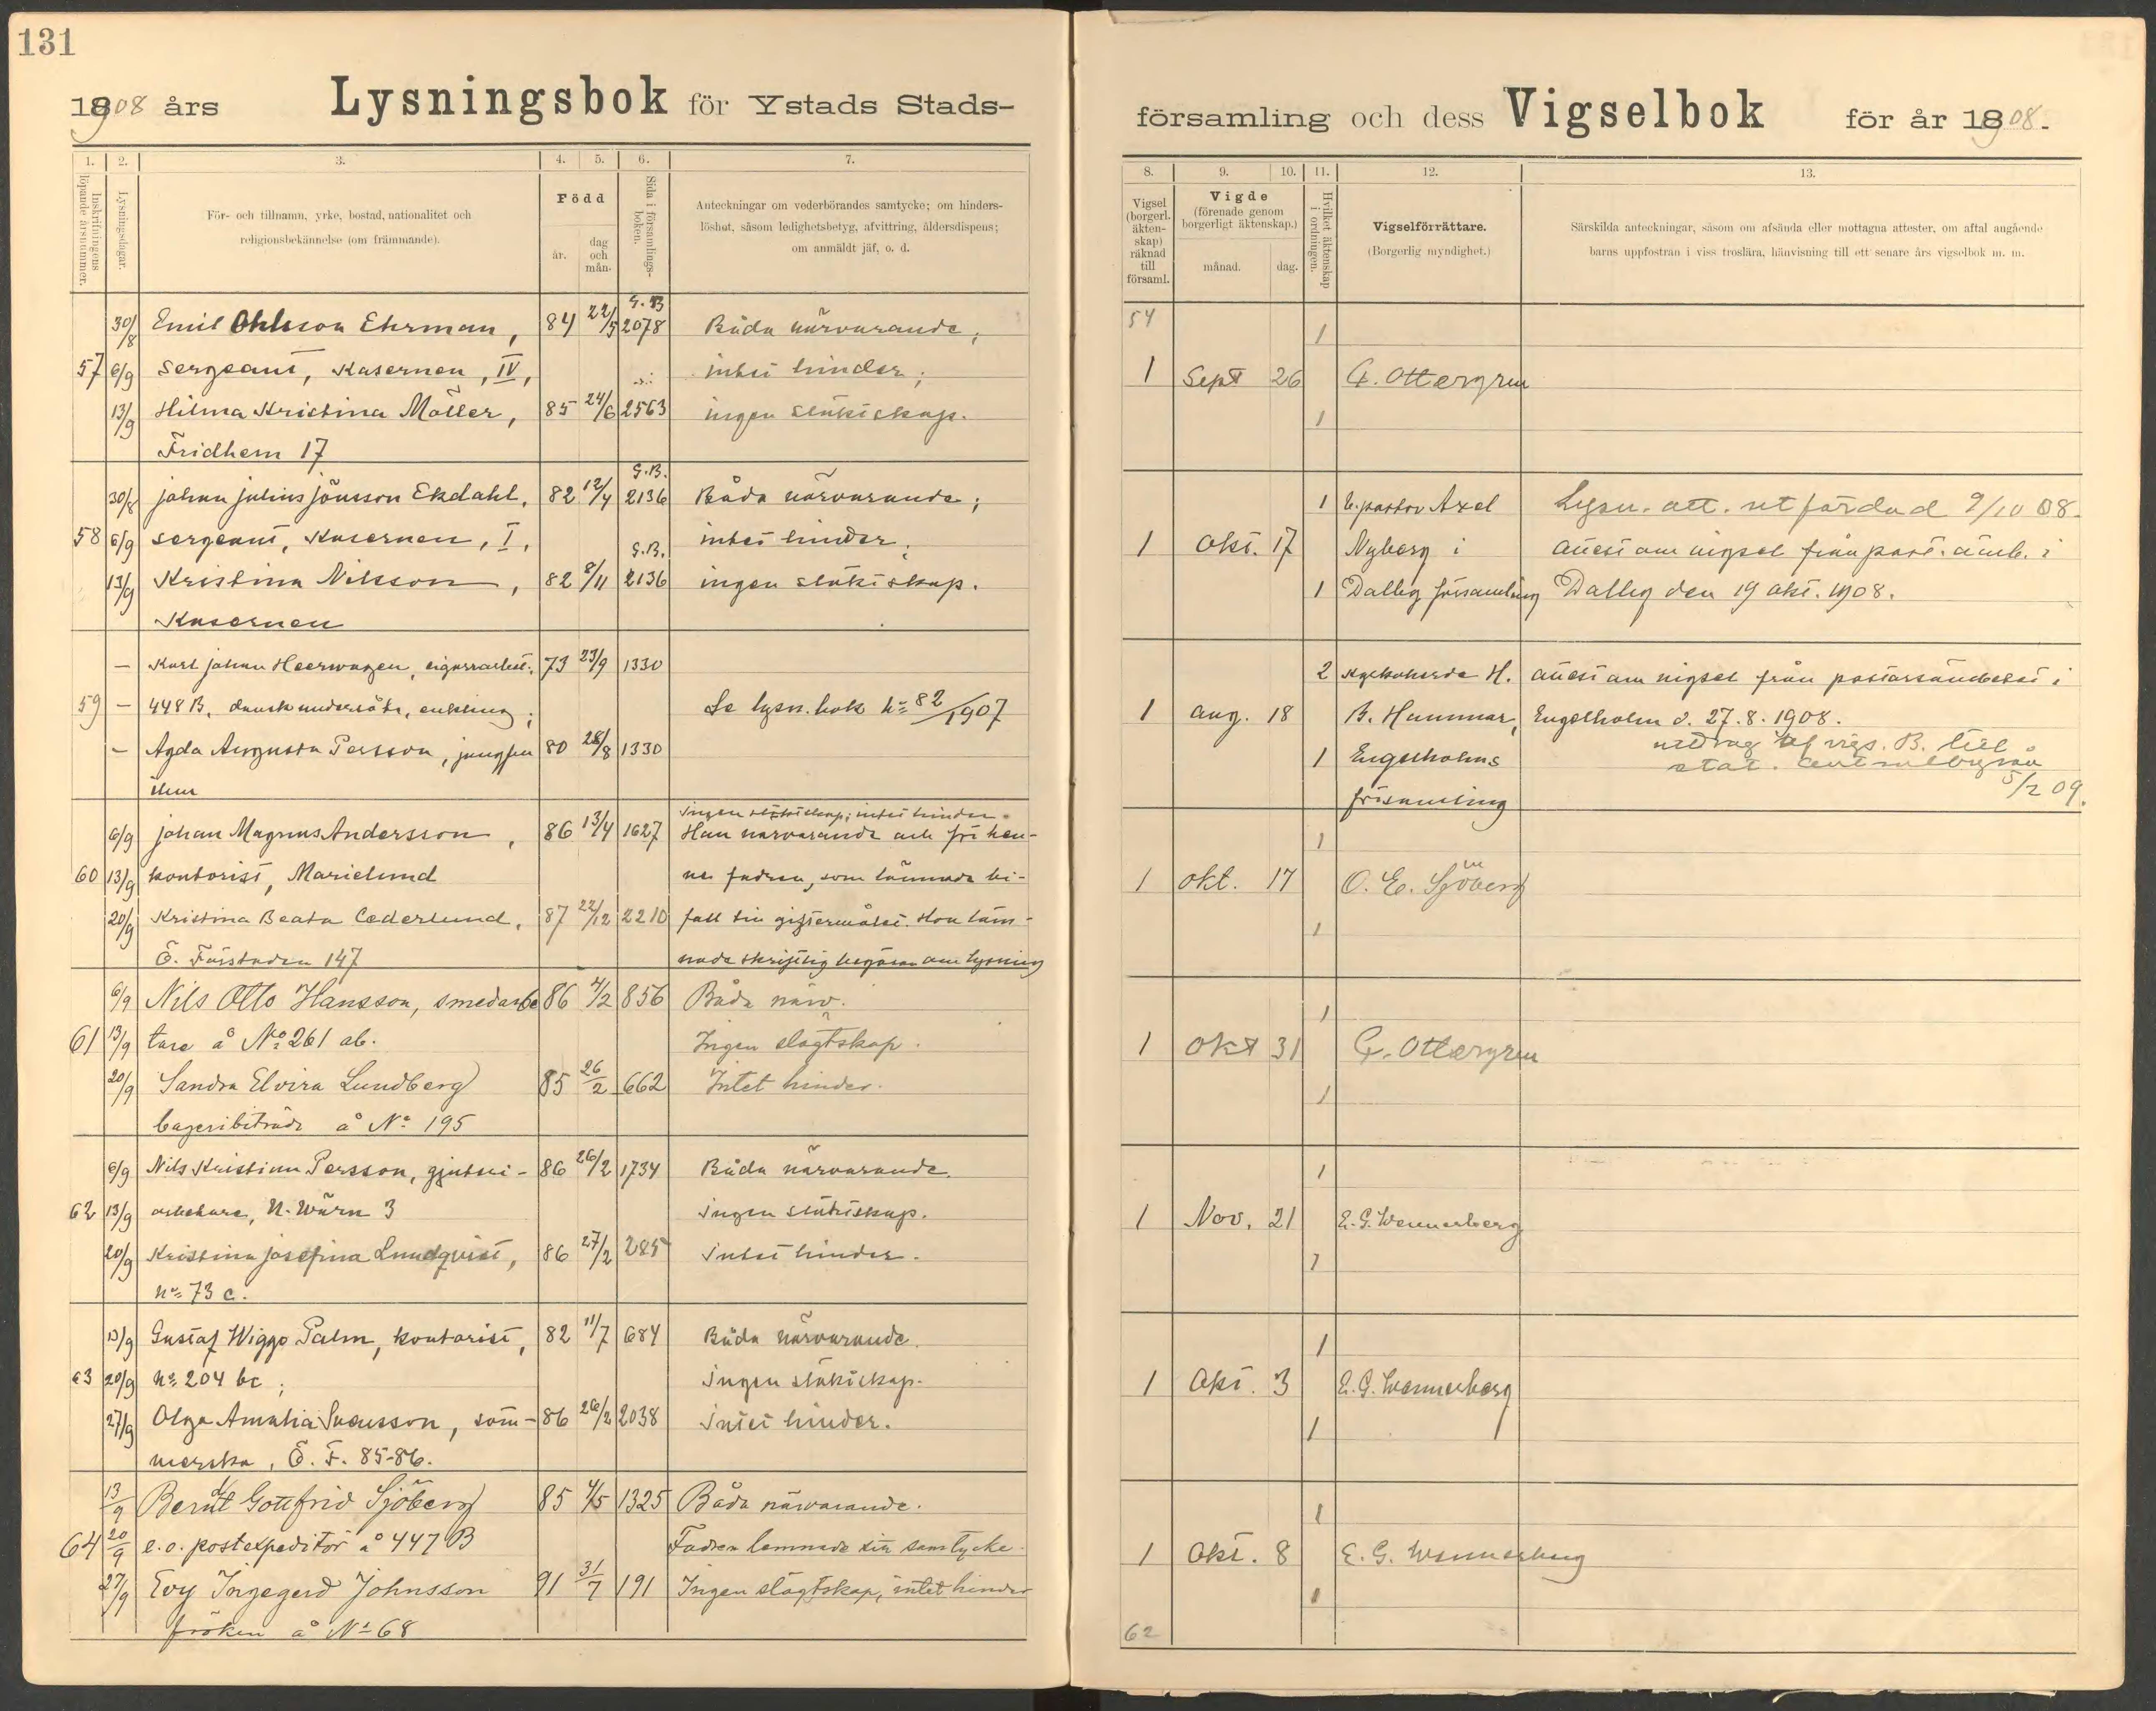 131
1908 års Lysningsbok för Ystads Stads-
1. 2. 3. 4. 5. 6. 7.
Inskrifningens löpande årsnummer.
Lysningsdagar.
För- och tillnamn, yrke, bostad, nationalitet och
religionsbekännelse (om främmande).
Född
år.
dag och mån.
Sida i församlings-boken.
Anteckningar om vederbörandes samtycke; om hinders-
löshet, såsom ledighetsbetyg, afvittring, åldersdispens;
om anmäldt jäf, o. d.
G. B
30/8 Emil Ohlsson Ehrman, 84 22/5 2078 Båda närvarande;
57 6/9 sergeant, Kasernen, IV, intet hinder;
13/9 Hilma Kristina Möller, 85 24/6 2563 ingen släktskap.
Fridhem 17
G.B.
30/8 Johan Julius Jönsson Ekdahl, 82 12/4 2136 Båda närvarande;
58 6/9 sergeant, Kasernen, I, intet hinder;
G.B.
13/9 Kristina Nilsson, 82 8/11 2136 ingen släktskap.
Kasernen
— Karl Johan Heerwagen, cigarrarbet. 73 23/9 1330
59 — 448 B, dansk undersåte, enkling; Se lysn. bok No 82/1907
— Agda Augusta Persson, jungfru 80 28/8 1330
ibm
Ingen släktskap; intet hinder.
6/9 Johan Magnus Andersson, 86 13/4 1627 Han närvarande och för hen-
60 13/9 kontorist, Marielund nes fadren, som lämnade bi-
20/9 Kristina Beata Cederlund, 87 22/12 2210 fall till giftermålet. Hon läm-
Ö. Förstaden 147 nade skriftlig begäran om lysning
6/9 Nils Otto Hansson, smedarbe 86 4/2 856 Båda närv.
61 13/9 tare å No 261 ab. Ingen slägtskap.
20/9 Sandra Elvira Lundberg 85 26/2 662 Intet hinder.
bageribiträde å No 195
6/9 Nils Kristian Persson, gjuteri- 86 26/2 1734 Båda närvarande.
62 13/9 arbetare, N. Wärn 3 Ingen släktskap.
20/9 Kristina Josefina Lundqvist, 86 27/2 285 Intet hinder.
No 73 c.
13/9 Gustaf Wiggo Palm, kontorist, 82 11/7 684 Båda närvarande.
63 20/9 No 204 bc; Ingen släktskap.
27/9 Olga Amalia Svensson, söm- 86 26/2 2038 Intet hinder.
merska, Ö. F. 85-86.
13/9 Berndt Gottfrid Sjöberg 85 4/5 1325 Båda närvarande.
64 20/9 e.o. postexpeditör å 447 B Fadren lemnade sitt samtycke.
27/9 Evy Ingegerd Johnsson 91 31/7 191 Ingen slägtskap, intet hinder
fröken å No 68
församling och dess Vigselbok för år 1908.
8. 9. 10. 11. 12. 13.
Vigsel (borgerl. äkten-skap) räknad till församl.
Vigde
(förenade genom borgerligt äktenskap.)
månad. dag.
Hvilket äktenskap i ordningen.
Vigselförrättare.
(Borgerlig myndighet.)
Särskilda anteckningar, såsom om afsända eller mottagna attester, om aftal angående
barns uppfostran i viss troslära, hänvisning till ett senare års vigselbok m. m.
54
1
1 Sept 26 G. Ottergren
1
1 V. pastor Axel Lysn. att. utfärdad 9/10 08.
1 Okt. 17 Nyberg i Attest om vigsel från past. ämb. i
1 Dalby församling Dalby den 19 okt. 1908.
2 Kyrkoherde H. Attest om vigsel från pastorsämbetet i
1 Aug. 18 B. Hammar, Engelholm d. 27.8.1908.
1 Engelholms utdrag af vigs. B. till
stat. centralbyrån
församling 5/2 09.
1
1 Okt. 17 O. E. Sjöberg
1
1
1 Okt 31 G. Ottergren
1
1
1 Nov. 21 E. G. Wennerberg
1
1
1 Okt. 3 E. G. Wennerberg
1
1
1 Okt. 8 E. G. Wennerberg
1
62